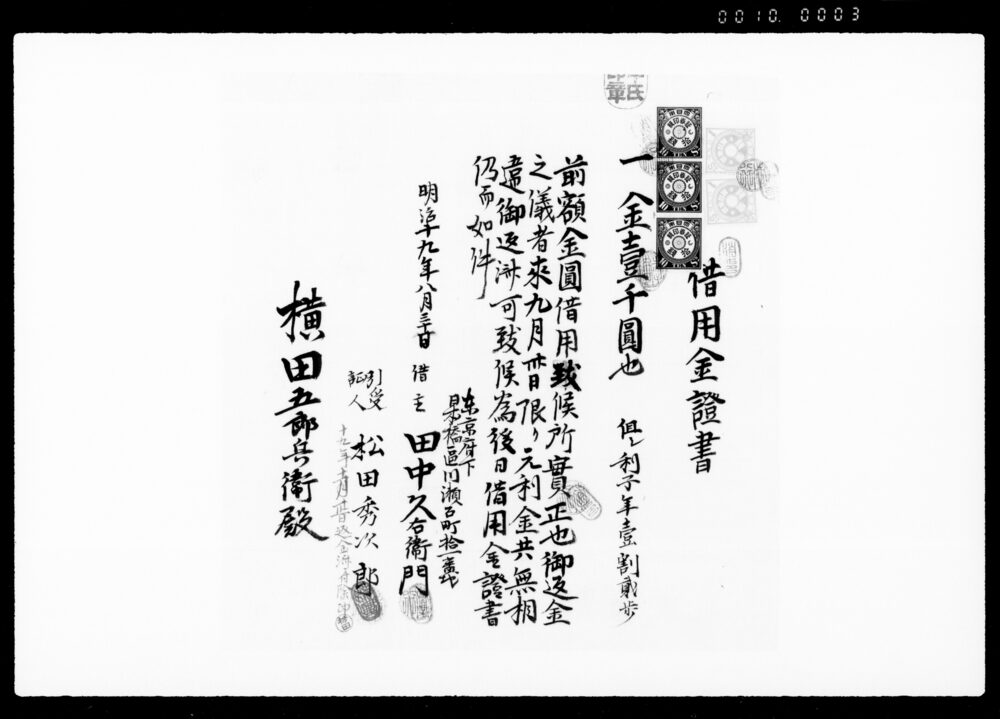 0010.0003
借用金證書
一金壹千圓也 但シ利子年壹割貳歩
前額金圓借用致候所實正也御返金
之儀者來九月卅日限リ元利金共無相
違御返済可致候為後日借用金證書
仍而如件
明治十九年八月三十日
東京府下
日本橋區川瀬石町拾一番地
借主 田中久右衛門
引受
証人 松田秀次郎
横田五郎兵衛殿